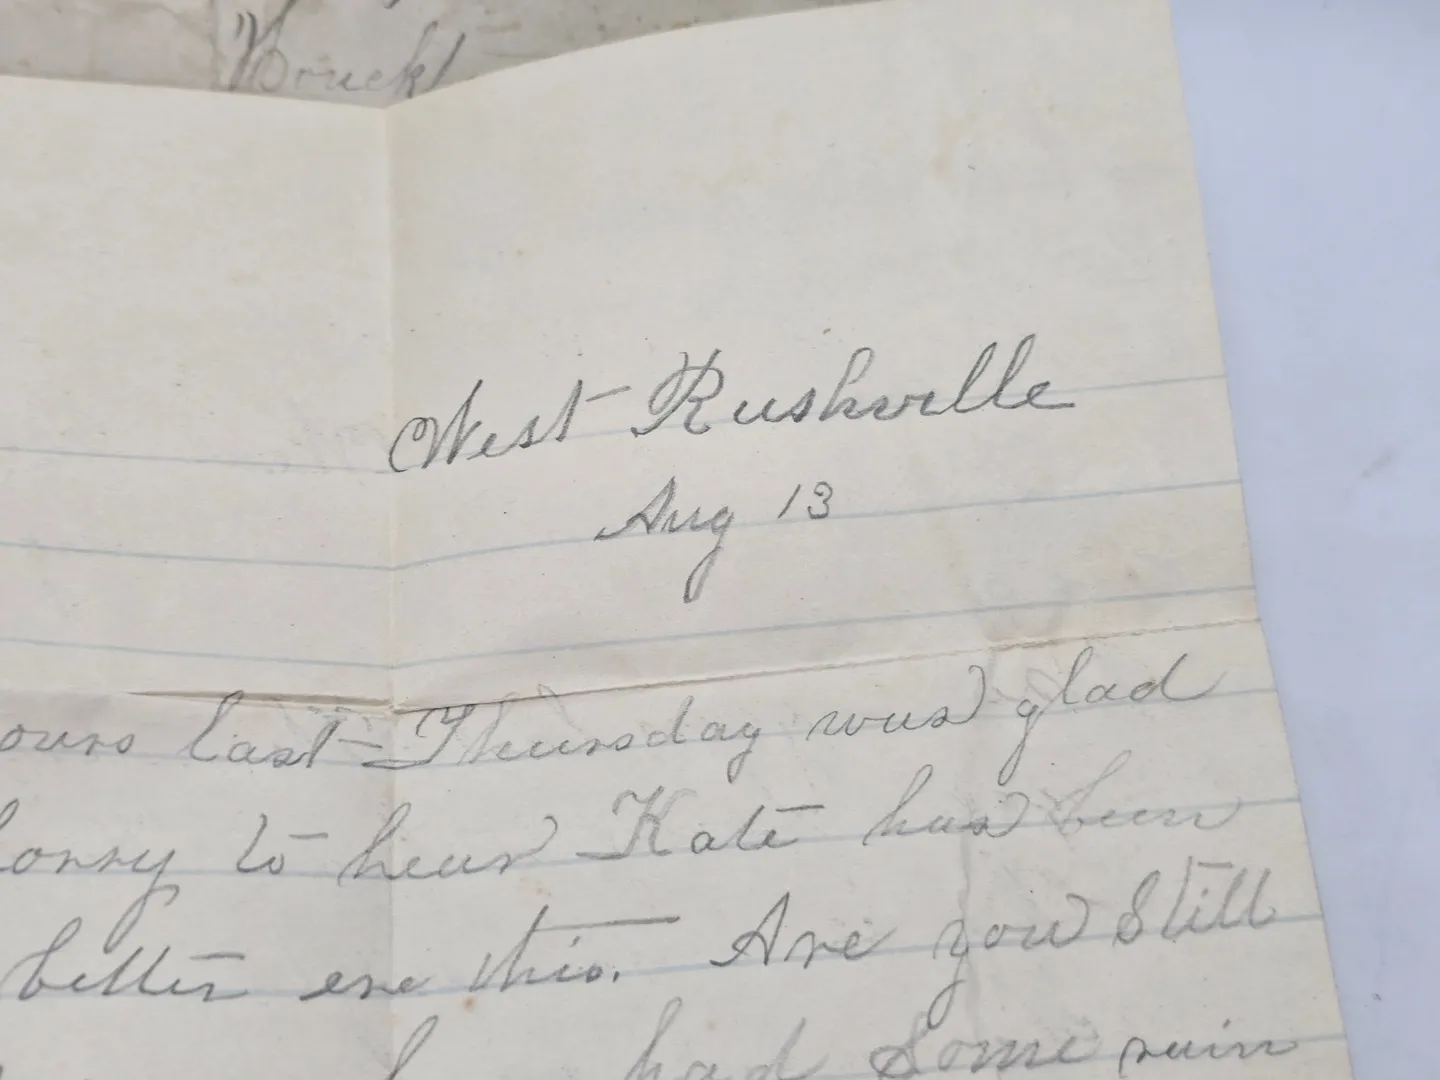 West Rushville
Aug 13
ours last Thursday was glad
sorry to hear Kate has been
better ere this. Are you Still
had Some rain